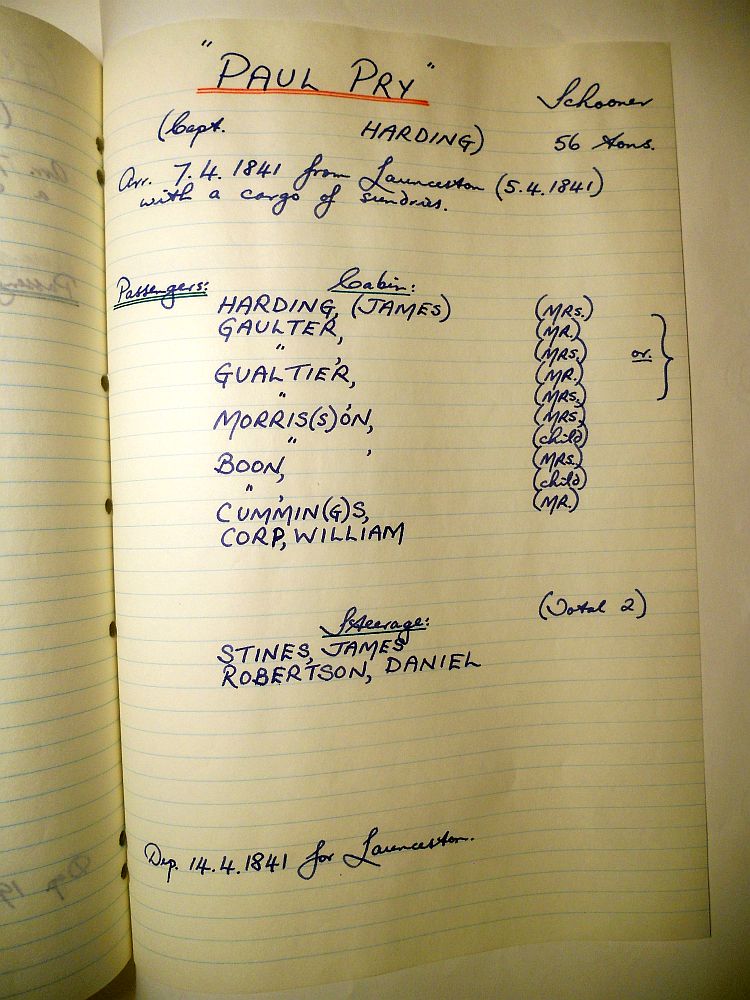 "PAUL PRY"
Schooner
(Capt. HARDING) 56 tons.
Arr. 7.4.1841 from Launceston (5.4.1841)
with a cargo of sundries.
Passengers: Cabin:
HARDING, (JAMES) (MRS.)
GAULTER, (MR.)
" , (MRS.) or. }
GUALTIER, (MR.)
" , (MRS.)
MORRIS(S)ON, (MRS.)
" , (child)
BOON, (MRS.)
" , (child)
CUMMIN(G)S, (MR.)
CORP, WILLIAM
Steerage: (Total 2)
STINES, JAMES
ROBERTSON, DANIEL
Dep. 14.4.1841 for Launceston.